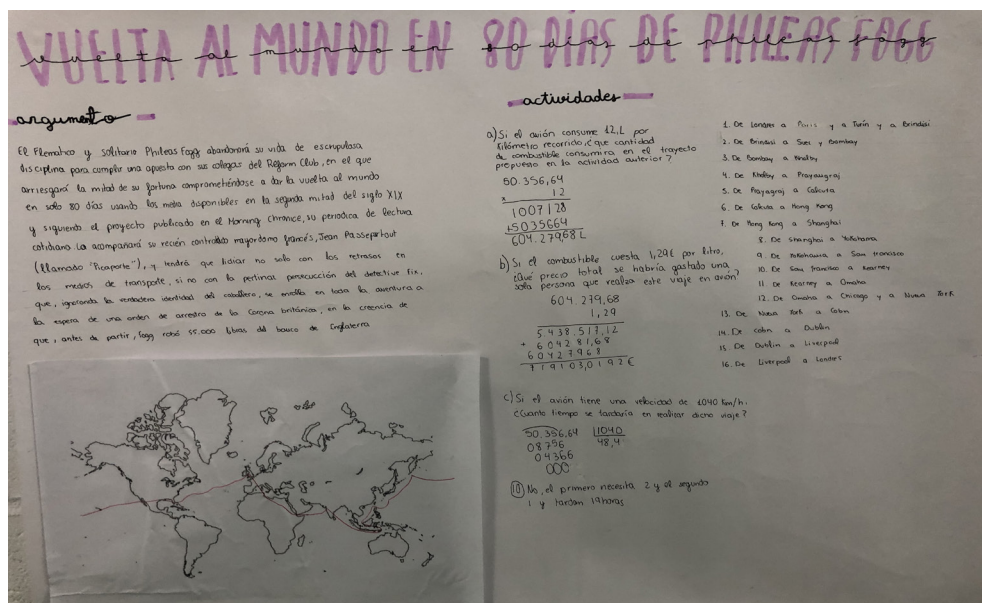 VUELTA AL MUNDO EN 80 DÍAS DE PHILEAS FOGG
vuelta al mundo en 80 días de phileas fogg
argumento
El Flematico y solitario Phileas Fogg abandonará su vida de escrupulosa
disciplina para cumplir una apuesta con sus colegas del Reform Club, en el que
arriesgará la mitad de su fortuna comprometiéndose a dar la vuelta al mundo
en solo 80 días usando los medios disponibles en la segunda mitad del siglo XIX
y siguiendo el proyecto publicado en el Morning chronice, su periodica de lectura
cotidiano. Lo acompañará su recién contratado mayordomo francés, Jean Passepartout
(llamado "Picaporte"), y tendrá que lidiar no solo con los retrasos en
los medios de transporte, si no con la pertinaz persecución del detective Fix,
que, ignorando la verdadera identidad del caballero, se enrolla en toda la aventura a
la espera de una orden de arresto de la Corona británica, en la creencia de
que, antes de partir, Fogg robó 55.000 libras del banco de Inglaterra
actividades
a) Si el avión consume 12,L por
Kilómetro recorrido, ¿que cantidad
de combustible consumira en el trayecto
propuesto en la actividad anterior?
50.356,64
x 12
1007128
+5035664
604.279,68 L
b) Si el combustible cuesta 1,29€ por litro,
¿Qué precio total se habría gastado una
sola persona que realiza este viaje en avión?
604.279,68
1,29
5438.517,12
+ 604281,68
6042796 8
719103,0192€
c) Si el avión tiene una velocidad de 1040 Km/h.
¿Cuanto tiempo se tardaría en realizar dicho viaje?
50.356,64 1040
08756 48,4
04366
000
10 No, el primero necesita 2 y el segundo
1 y tardan 19horas
1. De Londres a Paris y a Turín y a Brindisi
2. De Brindisi a Suez y Bombay
3. De Bombay a Kholby
4. De Kholby a Prayagraj
5. De Prayagraj a Calcuta
6. De Calcuta a Hong Kong
7. De Hong Kong a Shanghai
8. De Shanghai a Yokohama
9. De Yokohama a San francisco
10. De San francisco a Kearney
11 De Kearney a Omaha
12. De Omaha a Chicago y a Nueva York
13. De Nueva York a Cobn
14. De cobn a Dublín
15 De Dublin a Liverpool
16. De Liverpool a Londres